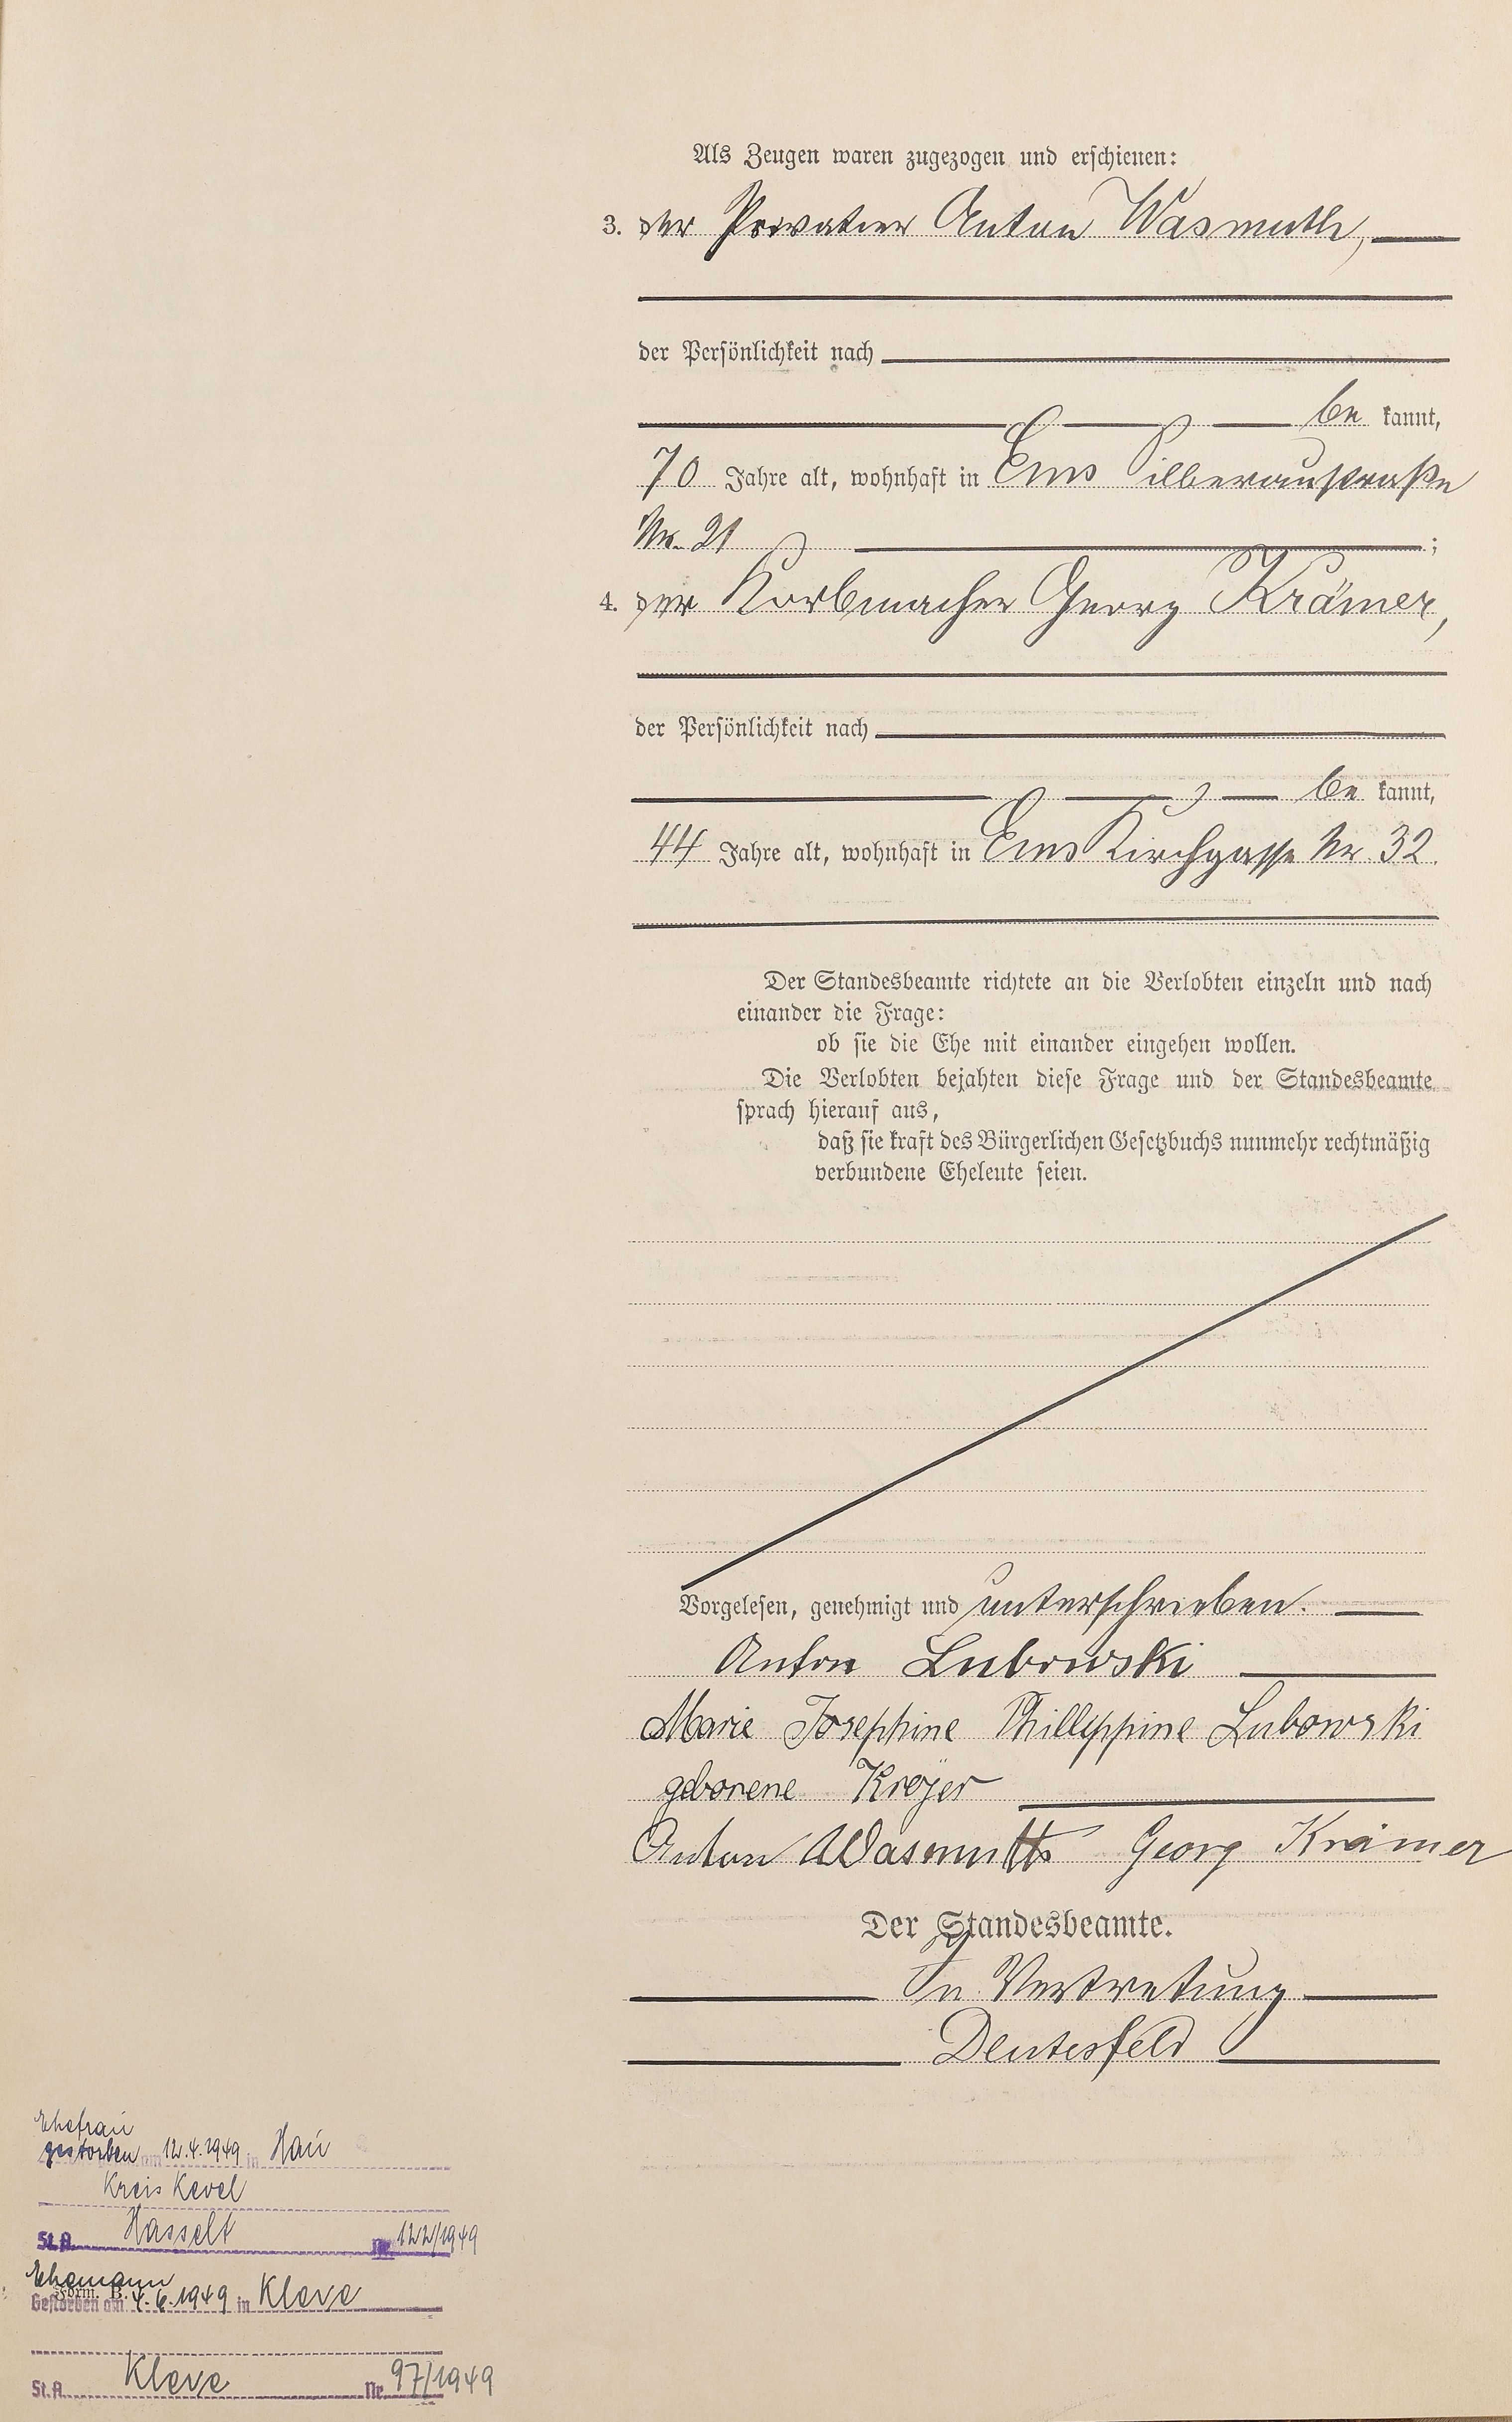 Als Zeugen waren zugezogen und erschienen:
3. der Privatier Anton Wasmuth,
der Persönlichkeit nach
be kannt,
70 Jahre alt, wohnhaft in Ems Silberaustraße
Nr. 21 ;
4. der Korbmacher Georg Krämer,
der Persönlichkeit nach
be kannt,
44 Jahre alt, wohnhaft in Ems Kirchgasse Nr. 32.
Der Standesbeamte richtete an die Verlobten einzeln und nach
einander die Frage:
ob sie die Ehe mit einander eingehen wollen.
Die Verlobten bejahten diese Frage und der Standesbeamte
sprach hierauf aus,
daß sie kraft des Bürgerlichen Gesetzbuchs nunmehr rechtmäßig
verbundene Eheleute seien.
Vorgelesen, genehmigt und unterschrieben.
Anton Lubowski
Marie Josephine Phillippine Lubowski
geborene Kröjer
Anton Wasmuth Georg Krämer
Der Standesbeamte.
In Vertretung
Deutesfeld
Ehefrau
gestorben am 12.4.1949 in Hau
Kreis Kevel
St.A. Hasselt Nr. 122/1949
Ehemann
Form. B.
Gestorben am 4.6.1949 in Kleve
St.A. Kleve Nr. 97/1949